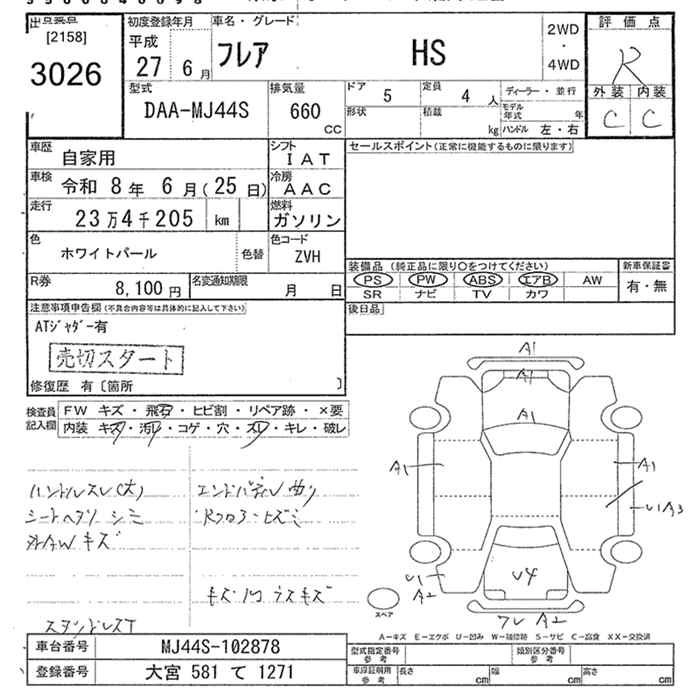 出品番号
[2158]
3026
初度登録年月
平成
27 6 月
車名・グレード
フレア HS
2WD
・
4WD
評価点
R
外装 内装
C C
型式
DAA-MJ44S
排気量
660
CC
ドア 5
定員 4 人
形状
積載 kg
ディーラー・並行
モデル年式 年
ハンドル 左・右
車歴 自家用
シフト IAT
車検 令和 8 年 6 月(25 日)
冷房 AAC
走行 23万4千205 km
燃料 ガソリン
色 ホワイトパール
色替
色コード ZVH
R券 8,100 円
名変通知期限 月 日
セールスポイント(正常に機能するものに限ります)
装備品 (純正品に限り○をつけてください)
PS PW ABS エアB AW
SR ナビ TV カワ
新車保証書
有・無
後日品
注意事項申告欄(不具合内容等は具体的に記入して下さい)
ATジャダー有
売切スタート
修復歴 有〔箇所 〕
検査員記入欄
FW キズ・飛石・ヒビ割・リペア跡・×要
内装 キズ・汚レ・コゲ・穴・スレ・キレ・破レ
ハンドルスレ(大)
シートヘタリ シミ
外AWキズ
エンドパネル曲り
Rフロアーヒズミ
キズ凹 ラスキズ
A1
A1
A1
A1
A1
U1A3
U1
A2
U4
フレ A2
スペア
A-キズ E-エクボ U-凹み W-補修跡 S-サビ C-腐食 XX-交換済
車台番号 MJ44S-102878
登録番号 大宮 581 て 1271
型式指定番号
参考
類別区分番号
参考
車庫証明用
参考
長さ cm
幅 cm
高さ cm